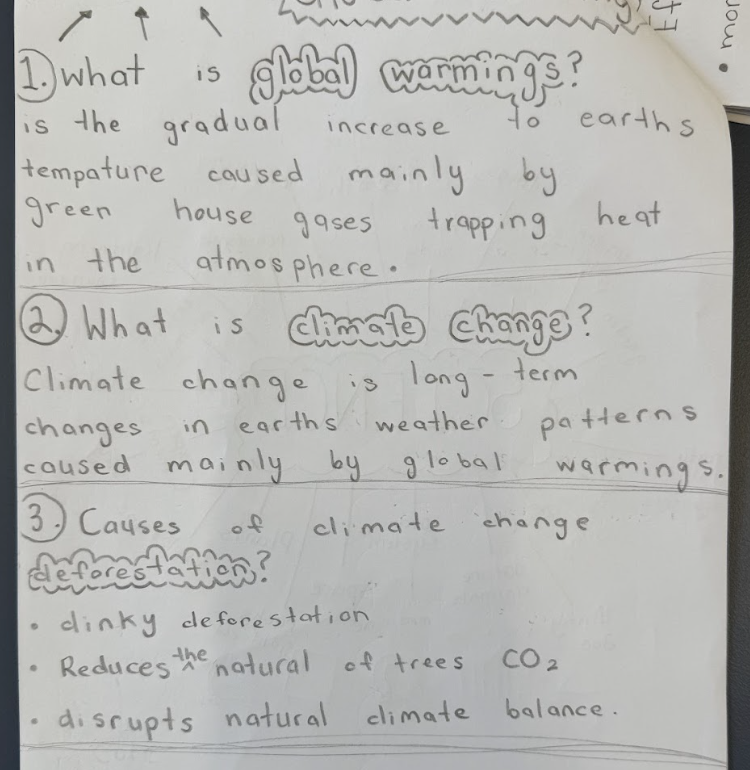 1. What is global warmings?
is the gradual increase to earths
tempature caused mainly by
green house gases trapping heat
in the atmosphere.
2. What is climate change?
Climate change is long-term
changes in earths weather patterns
caused mainly by global warmings.
3. Causes of climate change
deforestation?
• dinky deforestation
• Reduces the natural of trees CO2
• disrupts natural climate balance.